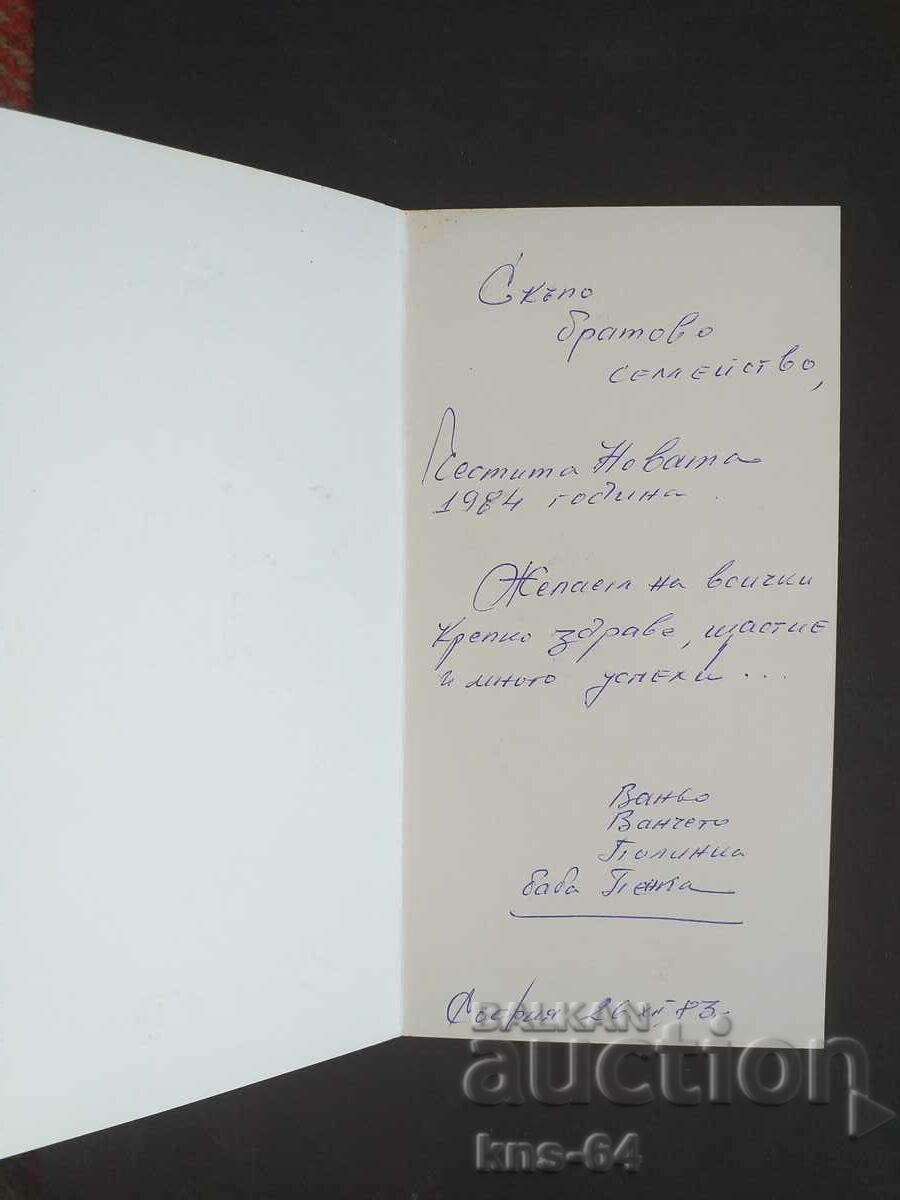 Скъпо
братово
семейство,
Честита Новата
1984 година.
Желаем на всички
крепко здраве, щастие
и много успехи...
Ваньо
Ванчето
Полинка
баба Пенка
София 26 XII 83.
BALKAN
auction
kns-64